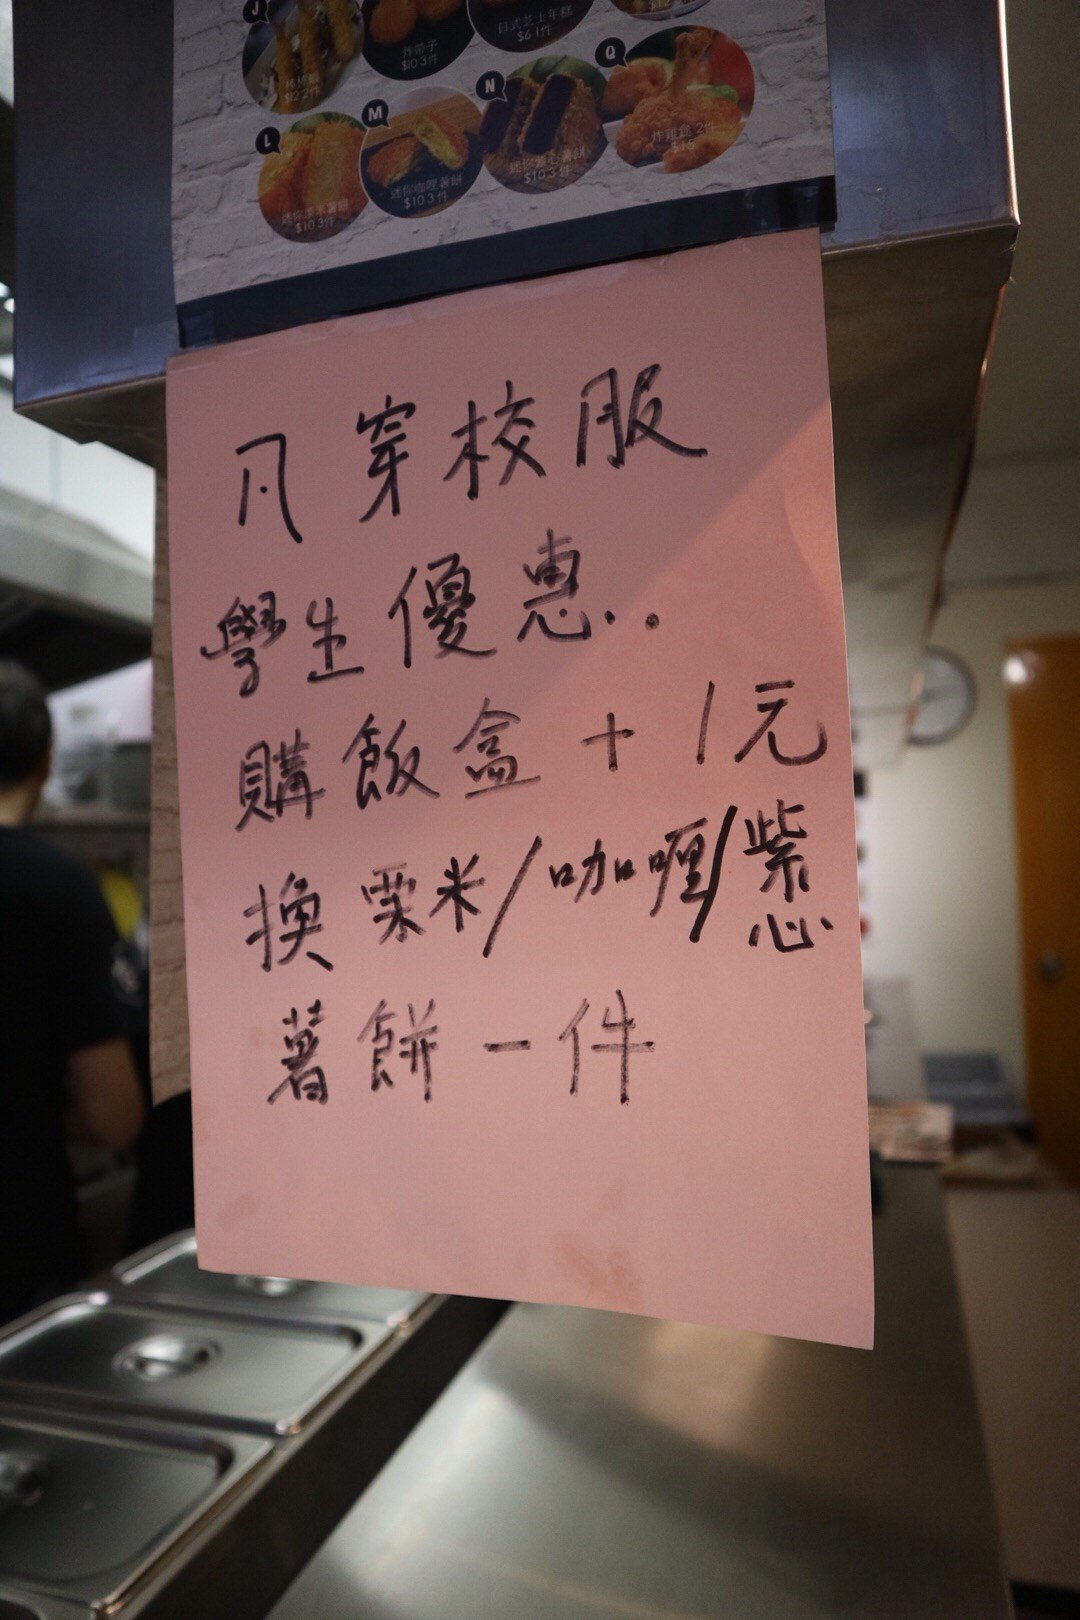 J
炸帶子
$10 3件
日式芝士年糕
$6 1件
$12 2件
L
迷你粟米薯餅
$10 3件
M
迷你咖喱薯餅
$10 3件
N
迷你紫心薯餅
$10 3件
Q
炸雞髀 2件
$16
凡穿校服
學生優惠..
購飯盒+1元
換粟米/咖喱/紫心
薯餅一件